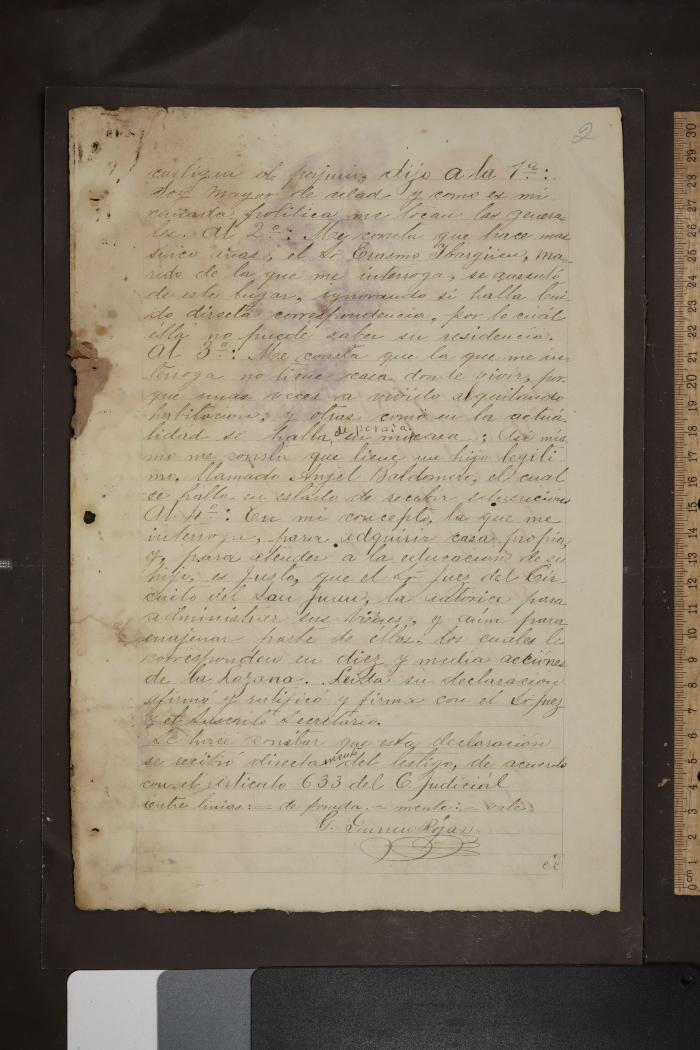 2
castigan el perjurio, dijo a la 1ª:
Soy mayor de edad y como es mi
cuñada política me tocan las genera-
les. Al 2º: Me consta que hace mas
sinco años, el Sr Erasmo Ibargüen, ma-
rido de la que me interroga, se ausentó
de este lugar, ignorando si halla teni-
do directa correspondencia, por lo cuál
ella no puede saber su residencia.
Al 3º: Me consta que la que me in-
terroga no tiene casa donde vivir, por
que unas veces a vivido alquilando
habitacion, y otras como en la actua-
lidad se halla de posada en mi casa: Asi mis
mo me consta que tiene un hijo legiti
mo, llamado Anjel Baldomero, el cual
se halla en estado de recibir
Al 4º: En mi concepto, la que me
interroga, para adquirir casa propia,
y para atender a la educacion de su
hijo, es justo, que el Sr Juez del Cir-
cuito del San Juan, la autorice para
administrar sus bienes, y aún para
enajenar parte de ellos, los cuales le
corresponden en diez y media acciones
de la Lozana. Leida su declaracion
afirmó y ratificó y firma con el Sr Juez
y el Suscrito Secretario.
Se hace constar que esta declaración
se recibió directamente del testigo, de acuerdo
con el articulo 633 del C. Judicial
Entre linias: = de posada. = mente: = vale
G. Rójas